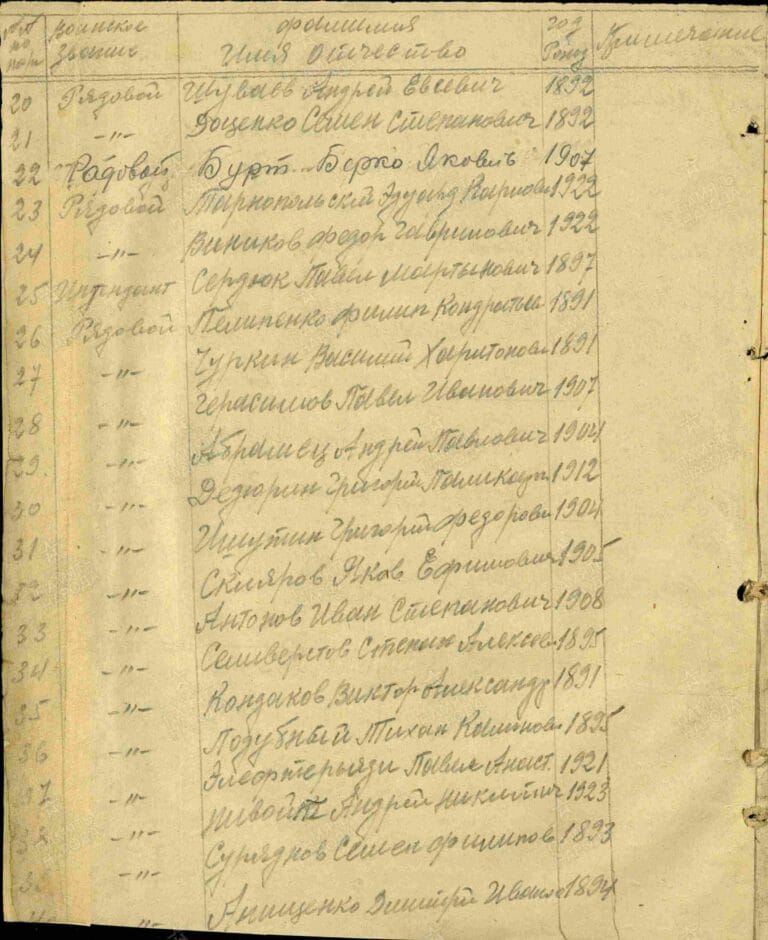 №№ по пор Воинское Звание Фамилия Имя Отчество год Рожд Примечание
20 Рядовой Шуваев Андрей Евсевич 1892
21 -"- Доценко Семен Степанович 1892
22 Рядовой Бурт Берко Яковль 1907
23 Рядовой Тарнопольский Эдуард Карлов 1922
24 -"- Виников Федор Гаврилович 1922
25 Интендант Сердюк Павел Мартынович 1897
26 Рядовой Пелипенко Филип Кондратьев 1891
27 -"- Чуркин Василий Харитонов 1891
28 -"- Герасимов Павел Иванович 1907
29. -"- Абрамец Андрей Павлович 1904
30 -"- Дедюрин Григорий 1912
31 -"- Ишутин Григорий Федоров 1904
32 -"- Скляров Яков Ефимович 1905
33 -"- Антонов Иван Степанович 1908
34 -"- Селиверстов Степан Алексеев 1895
35 -"- Кондаков Виктор Александр 1891
36 -"- Лозубный Тихан Калинов 1895
37 -"- Элефтерьяди Павел Анаст. 1921
38 -"- Живойт Андрей Никитич 1923
39 -"- Суряднов Семен Филипов 1893
40 -"- Анищенко Дмитрий Иванов 1894